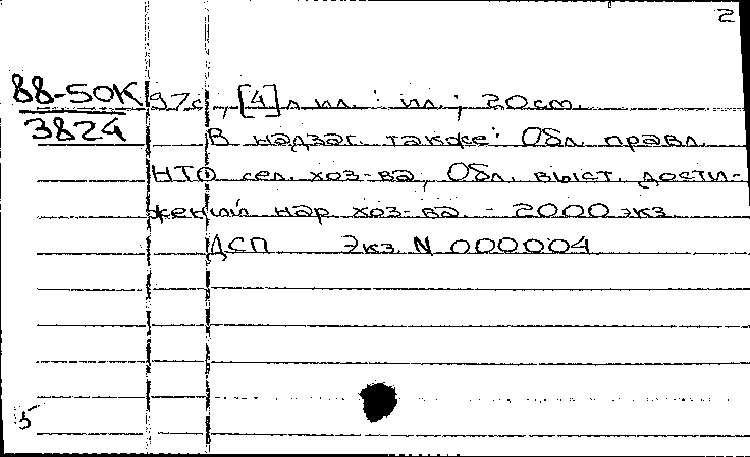 2
88-50К 97с., [4] л. ил. : ил.; 20см.
3824
В надзаг. также: Обл. правл.
НТО сел. хоз-ва, Обл. выст. дости-
жений нар. хоз-ва. - 2000 экз.
ДСП Экз. N 000004
5